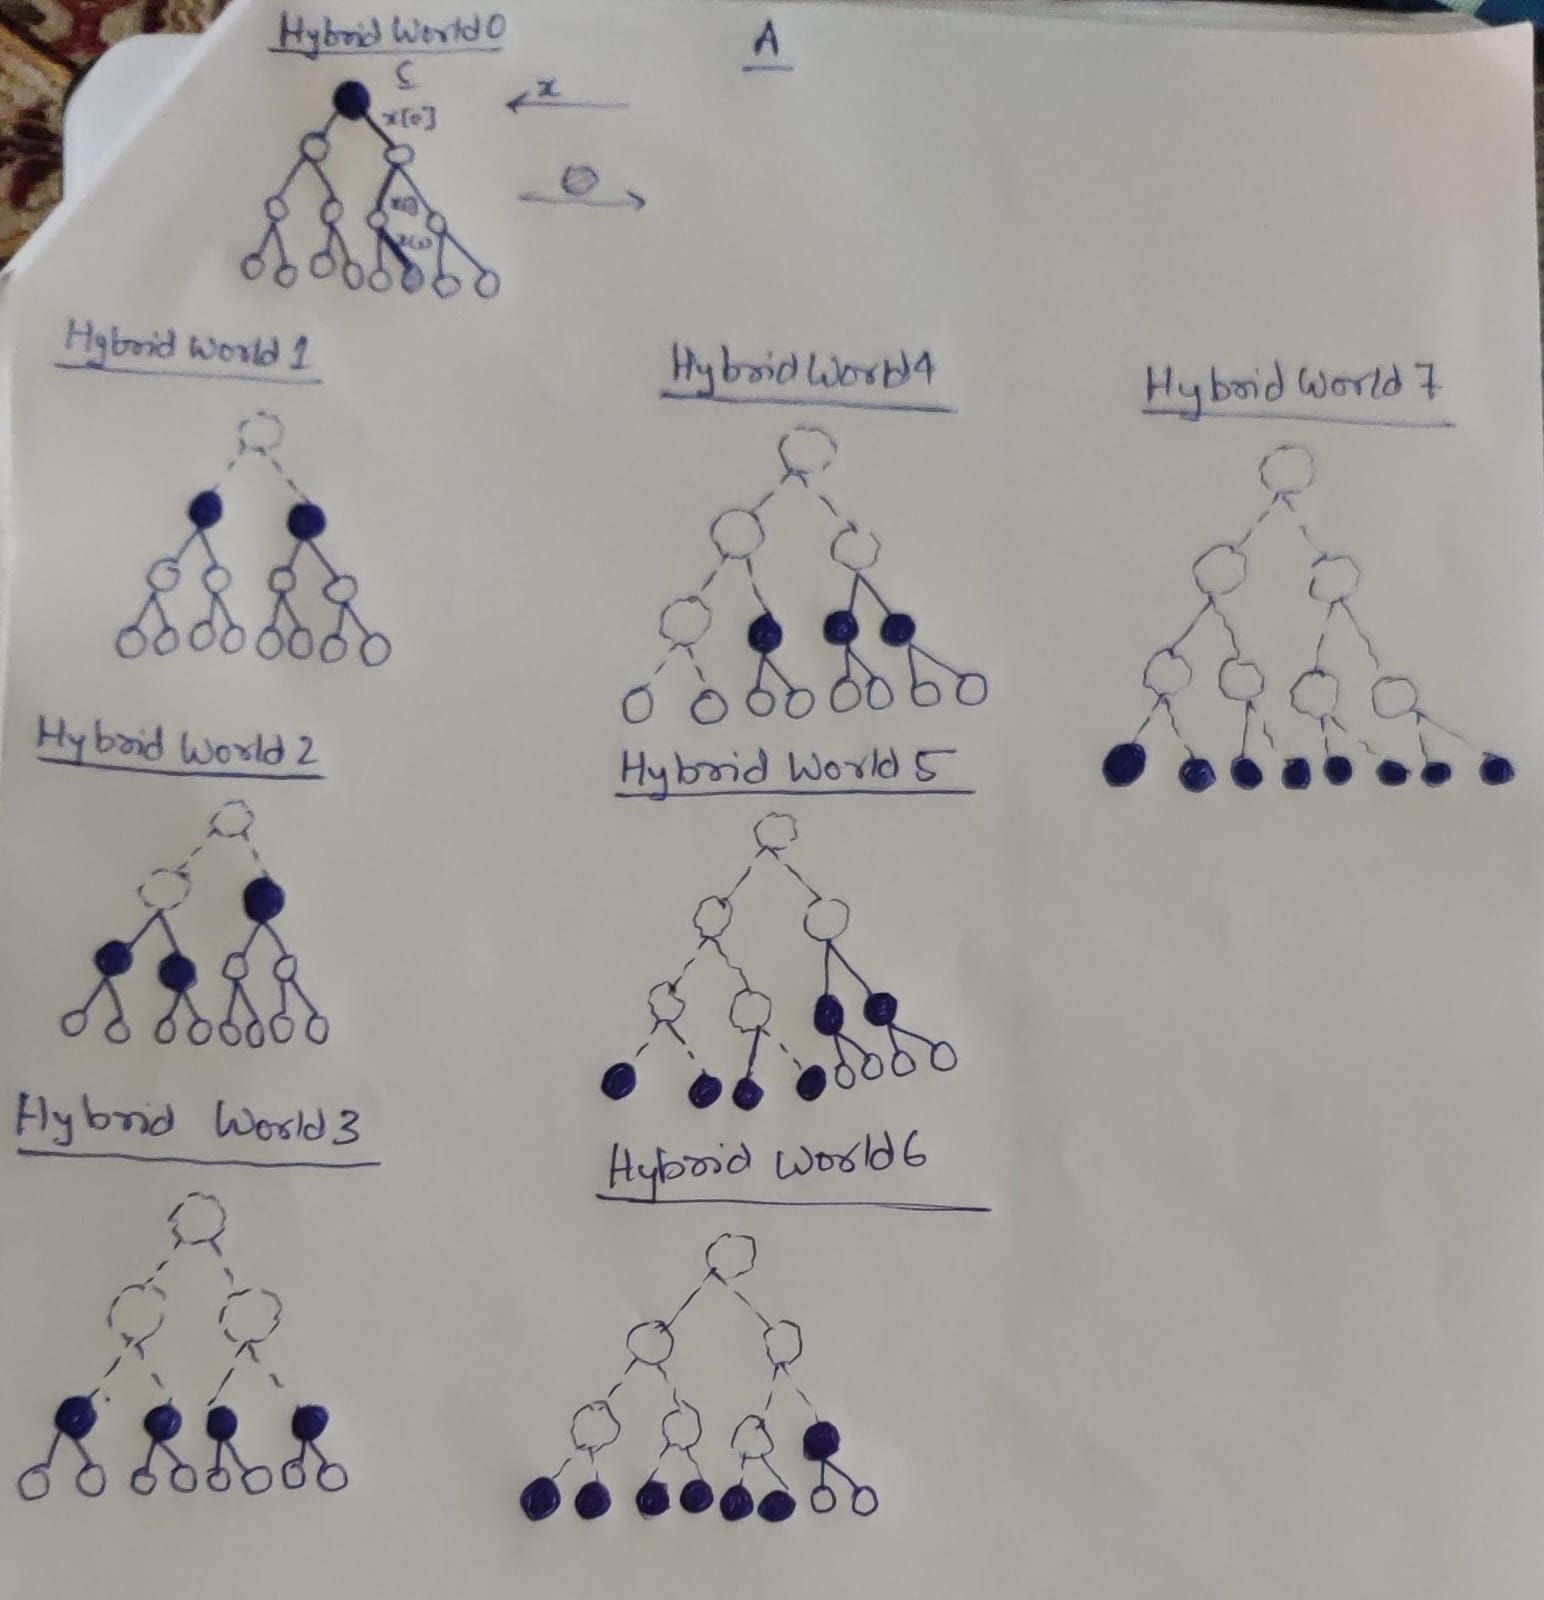 Hybrid World 0
A
S
x
x[0]
x[1]
x[2]
Hybrid World 1
Hybrid World 4
Hybrid World 7
Hybrid World 2
Hybrid World 5
Hybrid World 3
Hybrid World 6